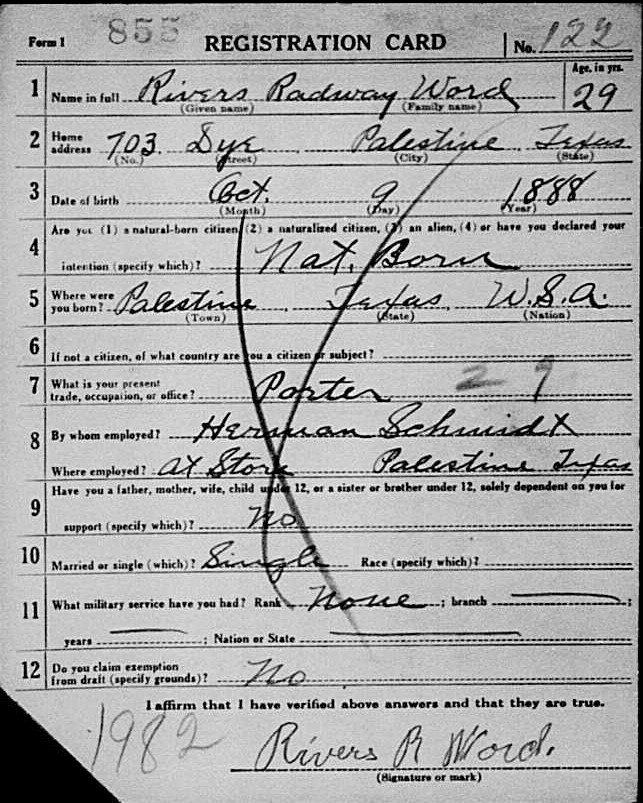 Form 1 855 REGISTRATION CARD No. 122
1 Name in full Rivers Radway Word Age, in yrs. 29
(Given name) (Family name)
2 Home address 703 Dye Palestine, Texas
(No.) (Street) (City) (State)
3 Date of birth Oct. 9 1888
(Month) (Day) (Year)
4 Are you (1) a natural-born citizen, (2) a naturalized citizen, (3) an alien, (4) or have you declared your
intention (specify which)? Nat. Born
5 Where were you born? Palestine, Texas, U.S.A.
(Town) (State) (Nation)
6 If not a citizen, of what country are you a citizen or subject?
7 What is your present trade, occupation, or office? Porter 29
8 By whom employed? Herman Schmidt
Where employed? At Store Palestine Texas
9 Have you a father, mother, wife, child under 12, or a sister or brother under 12, solely dependent on you for
support (specify which)? No
10 Married or single (which)? Single Race (specify which)?
11 What military service have you had? Rank None ; branch ;
years ; Nation or State
12 Do you claim exemption from draft (specify grounds)? No
I affirm that I have verified above answers and that they are true.
1982 Rivers R Word.
(Signature or mark)